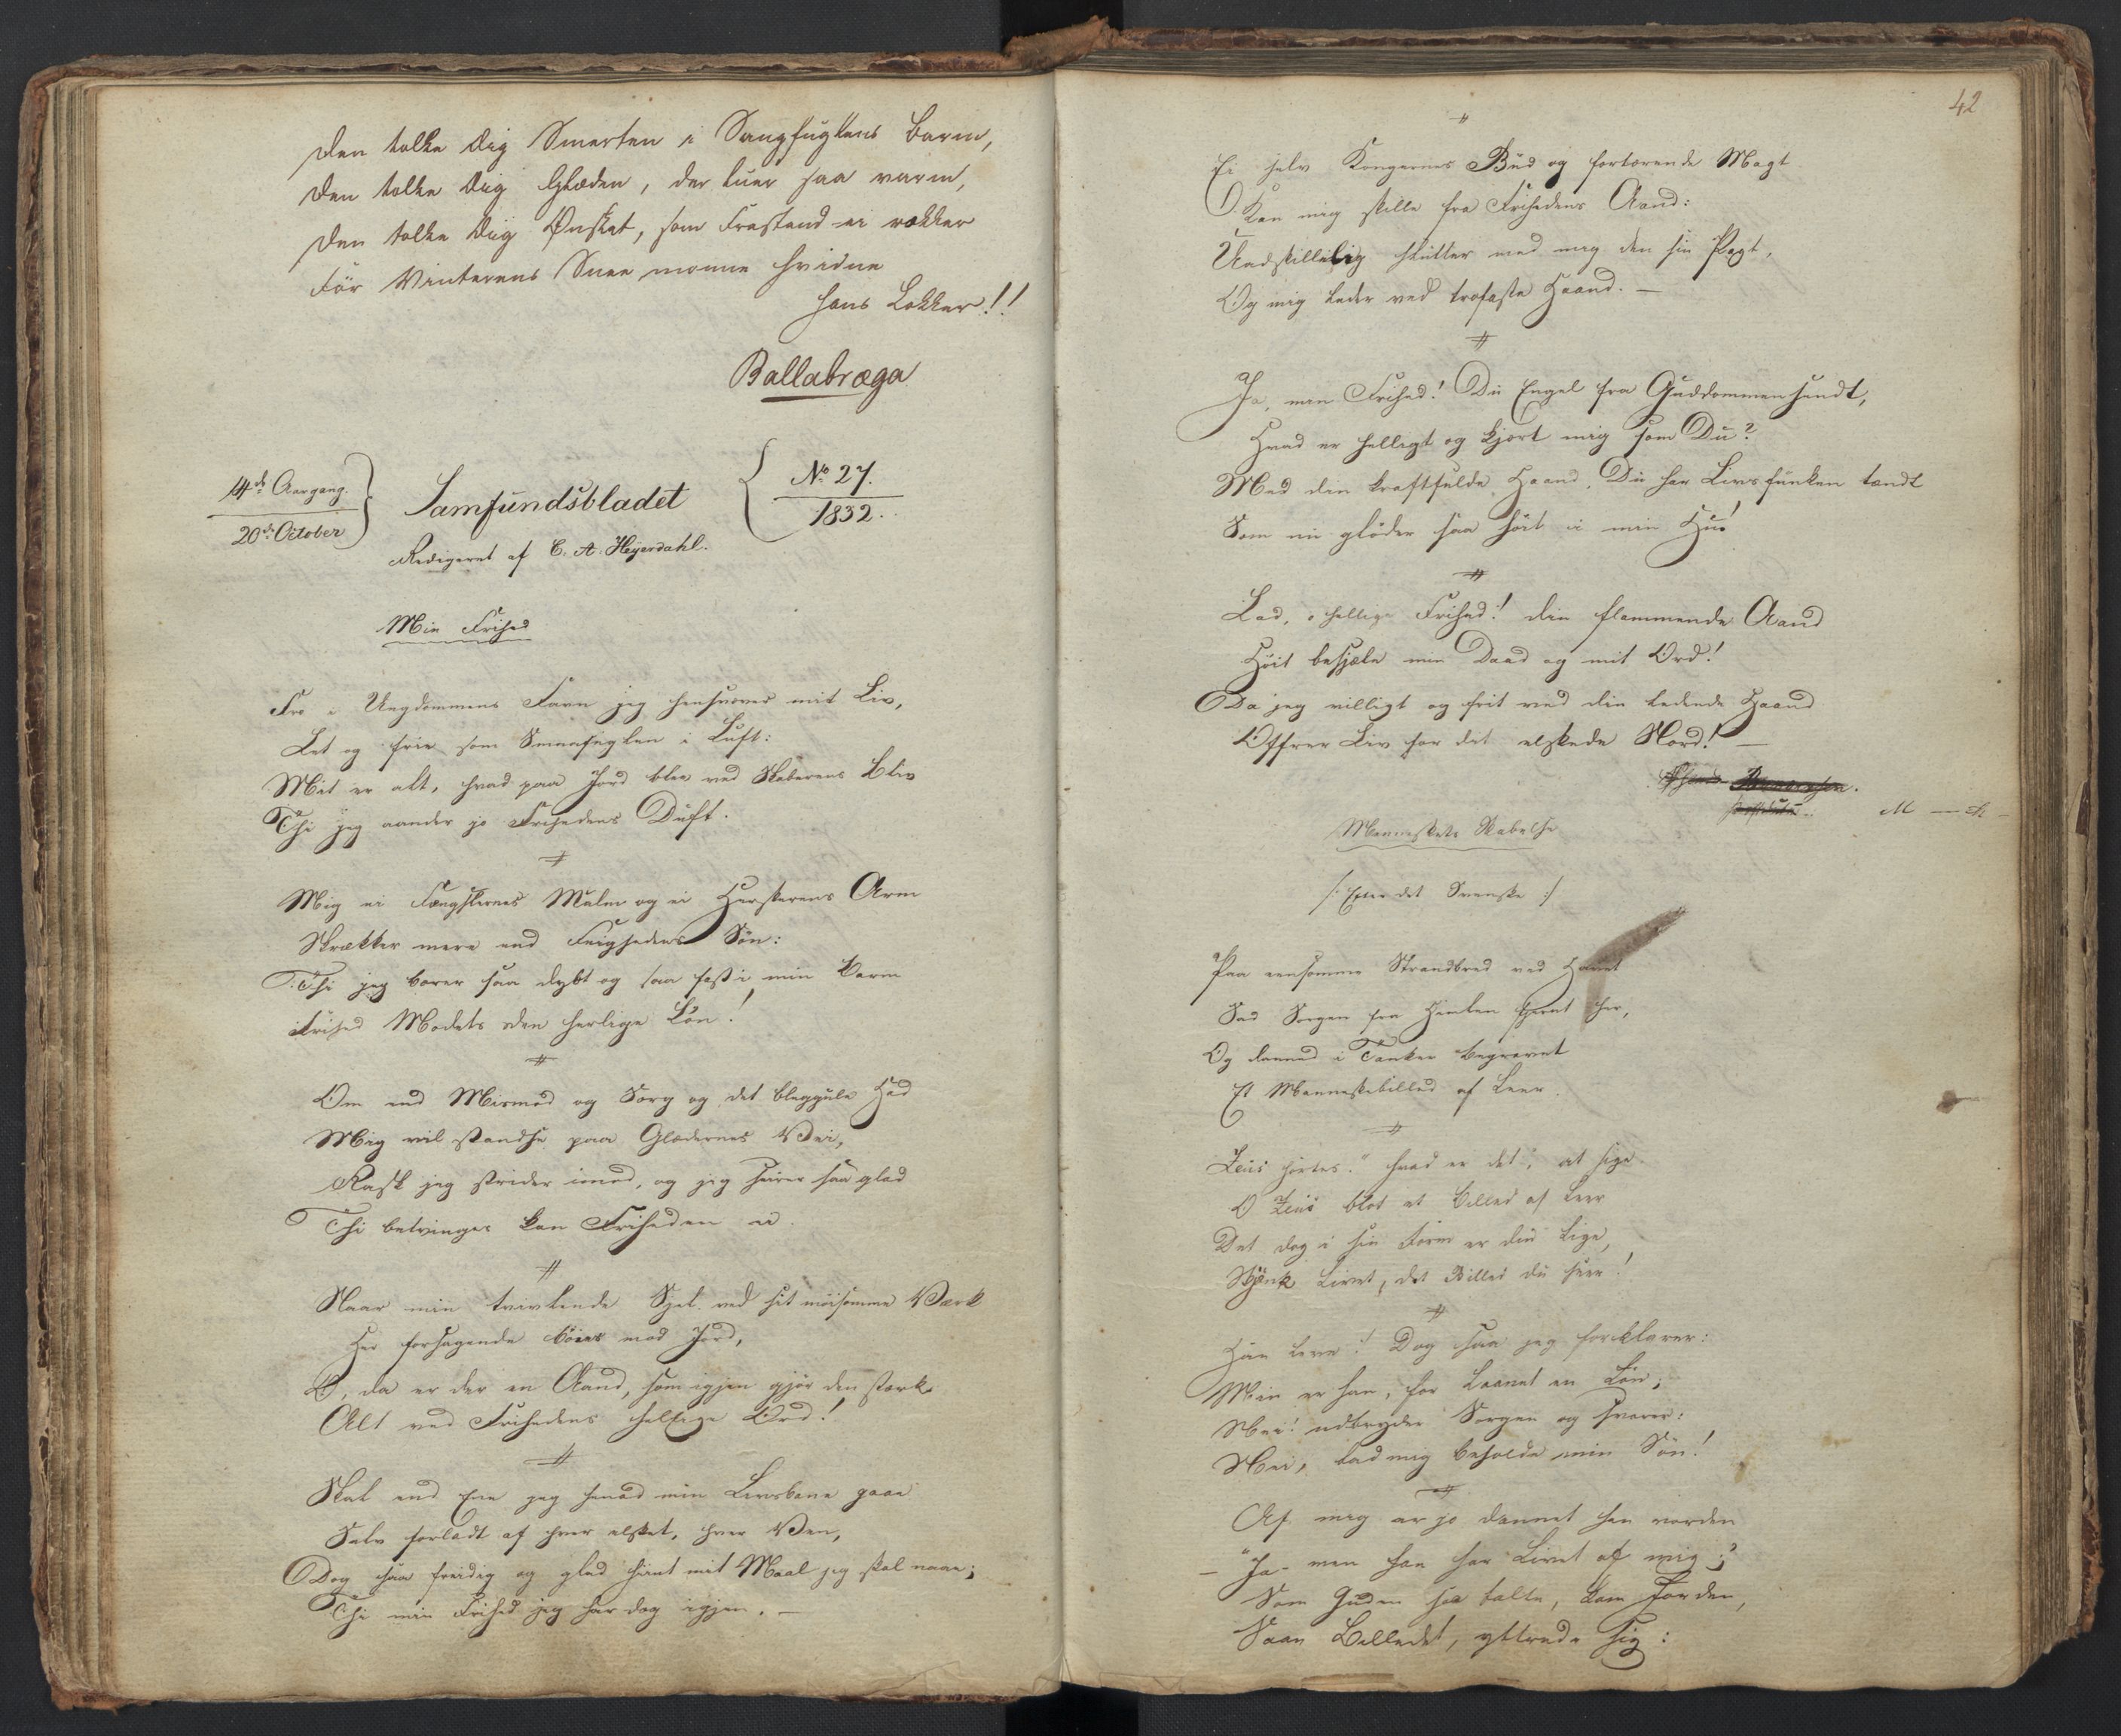 Den tolke Dig Smerten i Sangfuglens Barm,
Den tolke Dig Glæden, der luer saa varm,
Den tolke Dig Ønsket, som Frastand ei rokker
Før Vinterens Snee monne hvidne
hans Lokker!!
Ballabræga
14de Aargang.
20de October
Samfundsbladet
No 27.
1832.
Redigeret af C. A. Heyerdahl.
Min Frihed
Fro i Ungdommens Favn jeg hensvæver mit Liv,
Let og frie som Smaafuglen i Luft:
Mit er alt, hvad paa Jord blev ved Skaberens Bliv
Thi jeg aander jo Frihedens Duft.
Mig ei Fængslernes Mulm og ei Herskerens Arm
Skrækker mere end Feighedens Søn:
Thi jeg bærer saa dybt og saa fast i min Barm
Frihed Modets den herlige Løn!
Om end Mismod og Sorg og det bleggule Had
Mig vil standse paa Glædernes Vei,
Rask jeg strider imod, og jeg seirer saa glad
Thi betvinges kan Friheden ei.
Naar min tvivlende Sjel ved sit møisomme Værk
Her forsagende bøies mod Jord,
O, da er der en Aand, som igjen gjør den stærk
Alt ved Frihedens hellige Ord!
Skal end Ene jeg henad min Livsbane gaae
Selv forladt af hver elsket, hver Ven,
Dog saa freidig og glad hint mit Maal jeg skal naae;
Thi min Frihed jeg har dog igjen. —
42
Ei selv Kongernes Bud og fortærende Magt
Kan mig skille fra Frihedens Aand:
Uadskillelig slutter med mig den sin Pagt,
Og mig leder ved trofaste Haand. —
Ja, min Frihed! Du Engel fra Guddommen sendt,
Hvad er helligt og kjert mig som Du?
Med din kraftfulde Haand, Du har Livsfunken tændt
Som nu gløder saa høit i min Hu!
Lad, o hellige Frihed! din flammende Aand
Høit besjæle min Daad og mit Ord!
Da jeg villigt og frit ved din ledende Haand
Offrer Liv for det elskede Nord! —
M — k —
Menneskets Skabelse
/: Efter det Svenske :/
Paa eensomme Strandbred ved Havet
Sad Sorgen fra Himlen
Og danned i Tanker begravet
Et Menneskebilled af Leer.
Zeus hørtes: "hvad er det", at sige
O Zeus blot et Billed af Leer
Det dog i sin Form er din Lige,
Skjænk Livet, det Billed du seer!
Han leve! Dog saa jeg forklarer:
Min er han, for Laanet en Løn;
Nei! udbryder Sorgen og svarer:
Nei, lad mig beholde min Søn!
Af mig er jo dannet han vorden
— "Ja — men han har Livet af mig;"
Som Guden saa talte, kom Jorden,
Saae Billedet, yttrede sig: